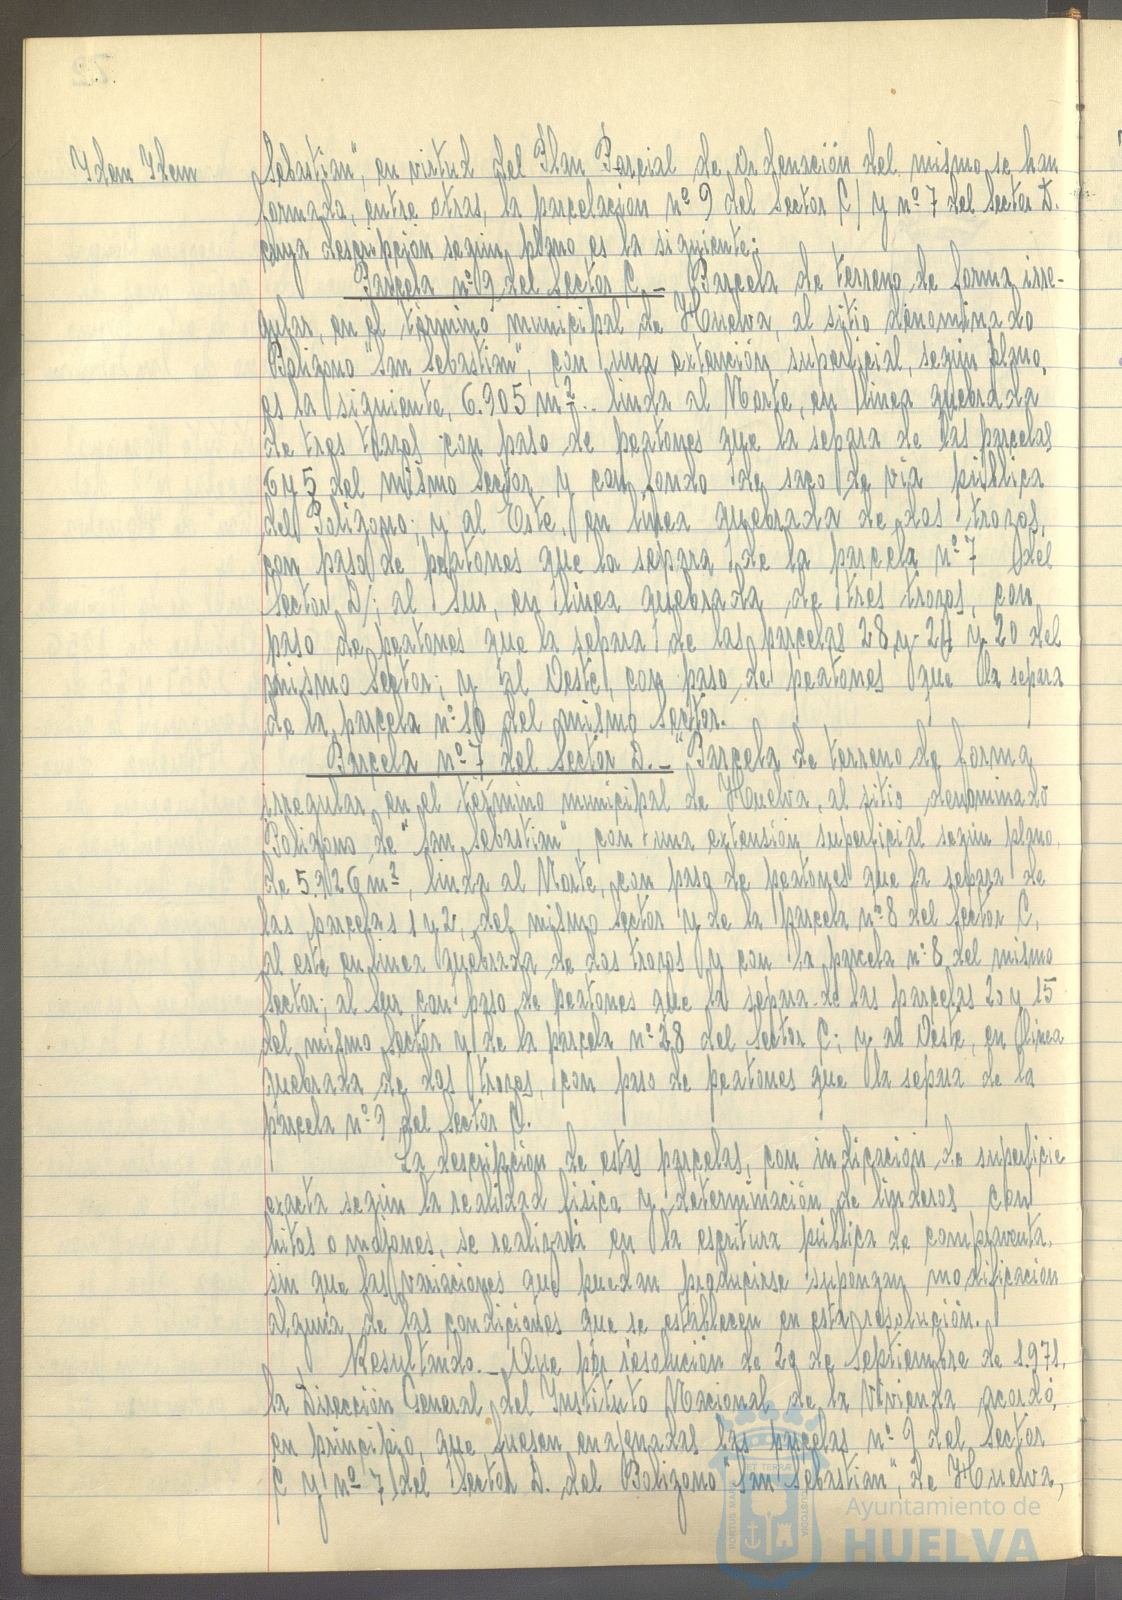 Idem Idem
Sebastian", en virtud del Plan Parcial de Ordenación del mismo se han
formado, entre otras, la parcelación nº 9 del Sector C/ y nº 7 del Sector D.
cuya descripción según plano es la siguiente:
Parcela nº 9 del Sector C.- Parcela de terreno de forma irre-
gular, en el término municipal de Huelva, al sitio denominado
Poligono "San Sebastian", con una extención superficial, según plano,
es la siguiente, 6.905 m².. linda al Norte, en linea quebrada
de tres trazos con paso de peatones que la separa de las parcelas
6 y 5 del mismo Sector y con fondo de saco de vía pública
del Poligono; y al Este, en linea quebrada de dos trozos,
con paso de peatones que la separa de la parcela nº 7 del
Sector D/; al Sur, en linea quebrada de tres trozos, con
paso de peatones que la separa de las parcelas 28 y 24 y 20 del
mismo Sector; y al Oeste, con paso de peatones que la separa
de la parcela nº 10 del mismo Sector.
Parcela nº 7 del Sector D.- "Parcela de terreno de forma
irregular, en el término municipal de Huelva, al sitio denominado
Poligono de "San Sebastian", con una extensión superficial según plano,
de 5.926 m², linda al Norte, con paso de peatones que la separa de
las parcelas 1 y 2, del mismo Sector y de la parcela nº 8 del Sector C,
al este en linea quebrada de dos trozos y con la parcela nº 8 del mismo
Sector; al Sur, con paso de peatones que la separa de las parcelas 20 y 15
del mismo Sector y de la parcela nº 28 del Sector C; y al Oeste, en linea
quebrada de dos trozos, con paso de peatones que la separa de la
parcela nº 9 del Sector C.
La descripción de estas parcelas, con indicación de superficie
exacta según la realidad fisica y determinación de linderos con
hitos o mojones, se realizará en la escritura pública de compraventa,
sin que las variaciones que puedan producirse supongan modificacion
alguna de las condiciones que se establecen en esta resolución.
Resultando.- Que por resolución de 29 de Septiembre de 1.971,
la Dirección General del Instituto Nacional de la Vivienda acordó,
en principio, que fuesen enajenadas las parcelas nº 9 del Sector
C y nº 7 del Sector D. del Poligono "San Sebastian", de Huelva,
Ayuntamiento de
HUELVA